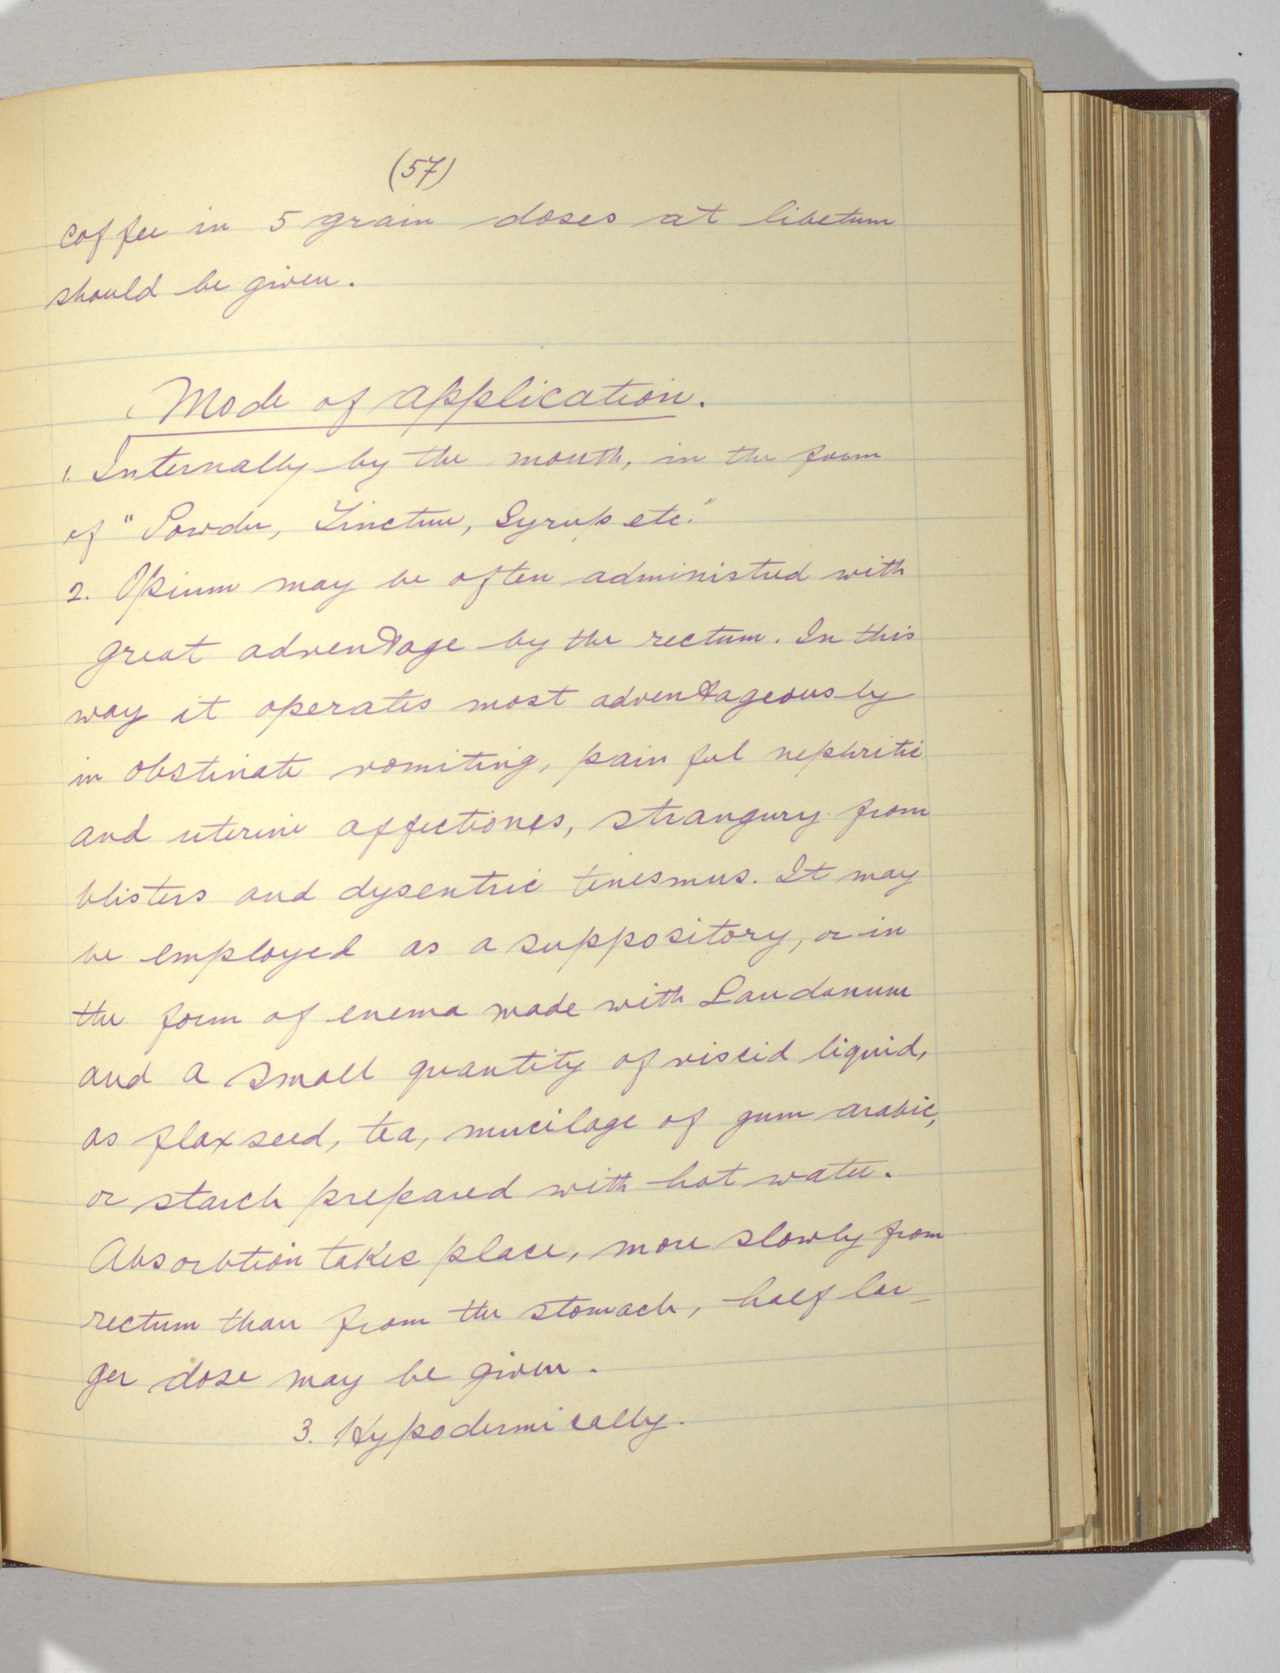 (57)
coffee in 5 grain doses at libetum
should be given.
Mode of application.
1. Internally by the mouth, in the form
of "Powder, Tincture, Syrup etc."
2. Opium may be often administred with
great adventage by the rectum. In this
way it operates most adventageously
in obstinate vomiting, painful nephritic
and uterine affectiones, strangury from
blisters and dysentric tenesmus. It may
be employed as a suppository, or in
the form of enema made with Laudanum
and a small quantity of viscid liquid,
as flaxseed, tea, mucilage of gum arabic,
or starch prepared with hot water.
Absorbtion takes place, more slowly from
rectum than from the stomach, half lar
ger dose may be given.
3. Hypodermically.